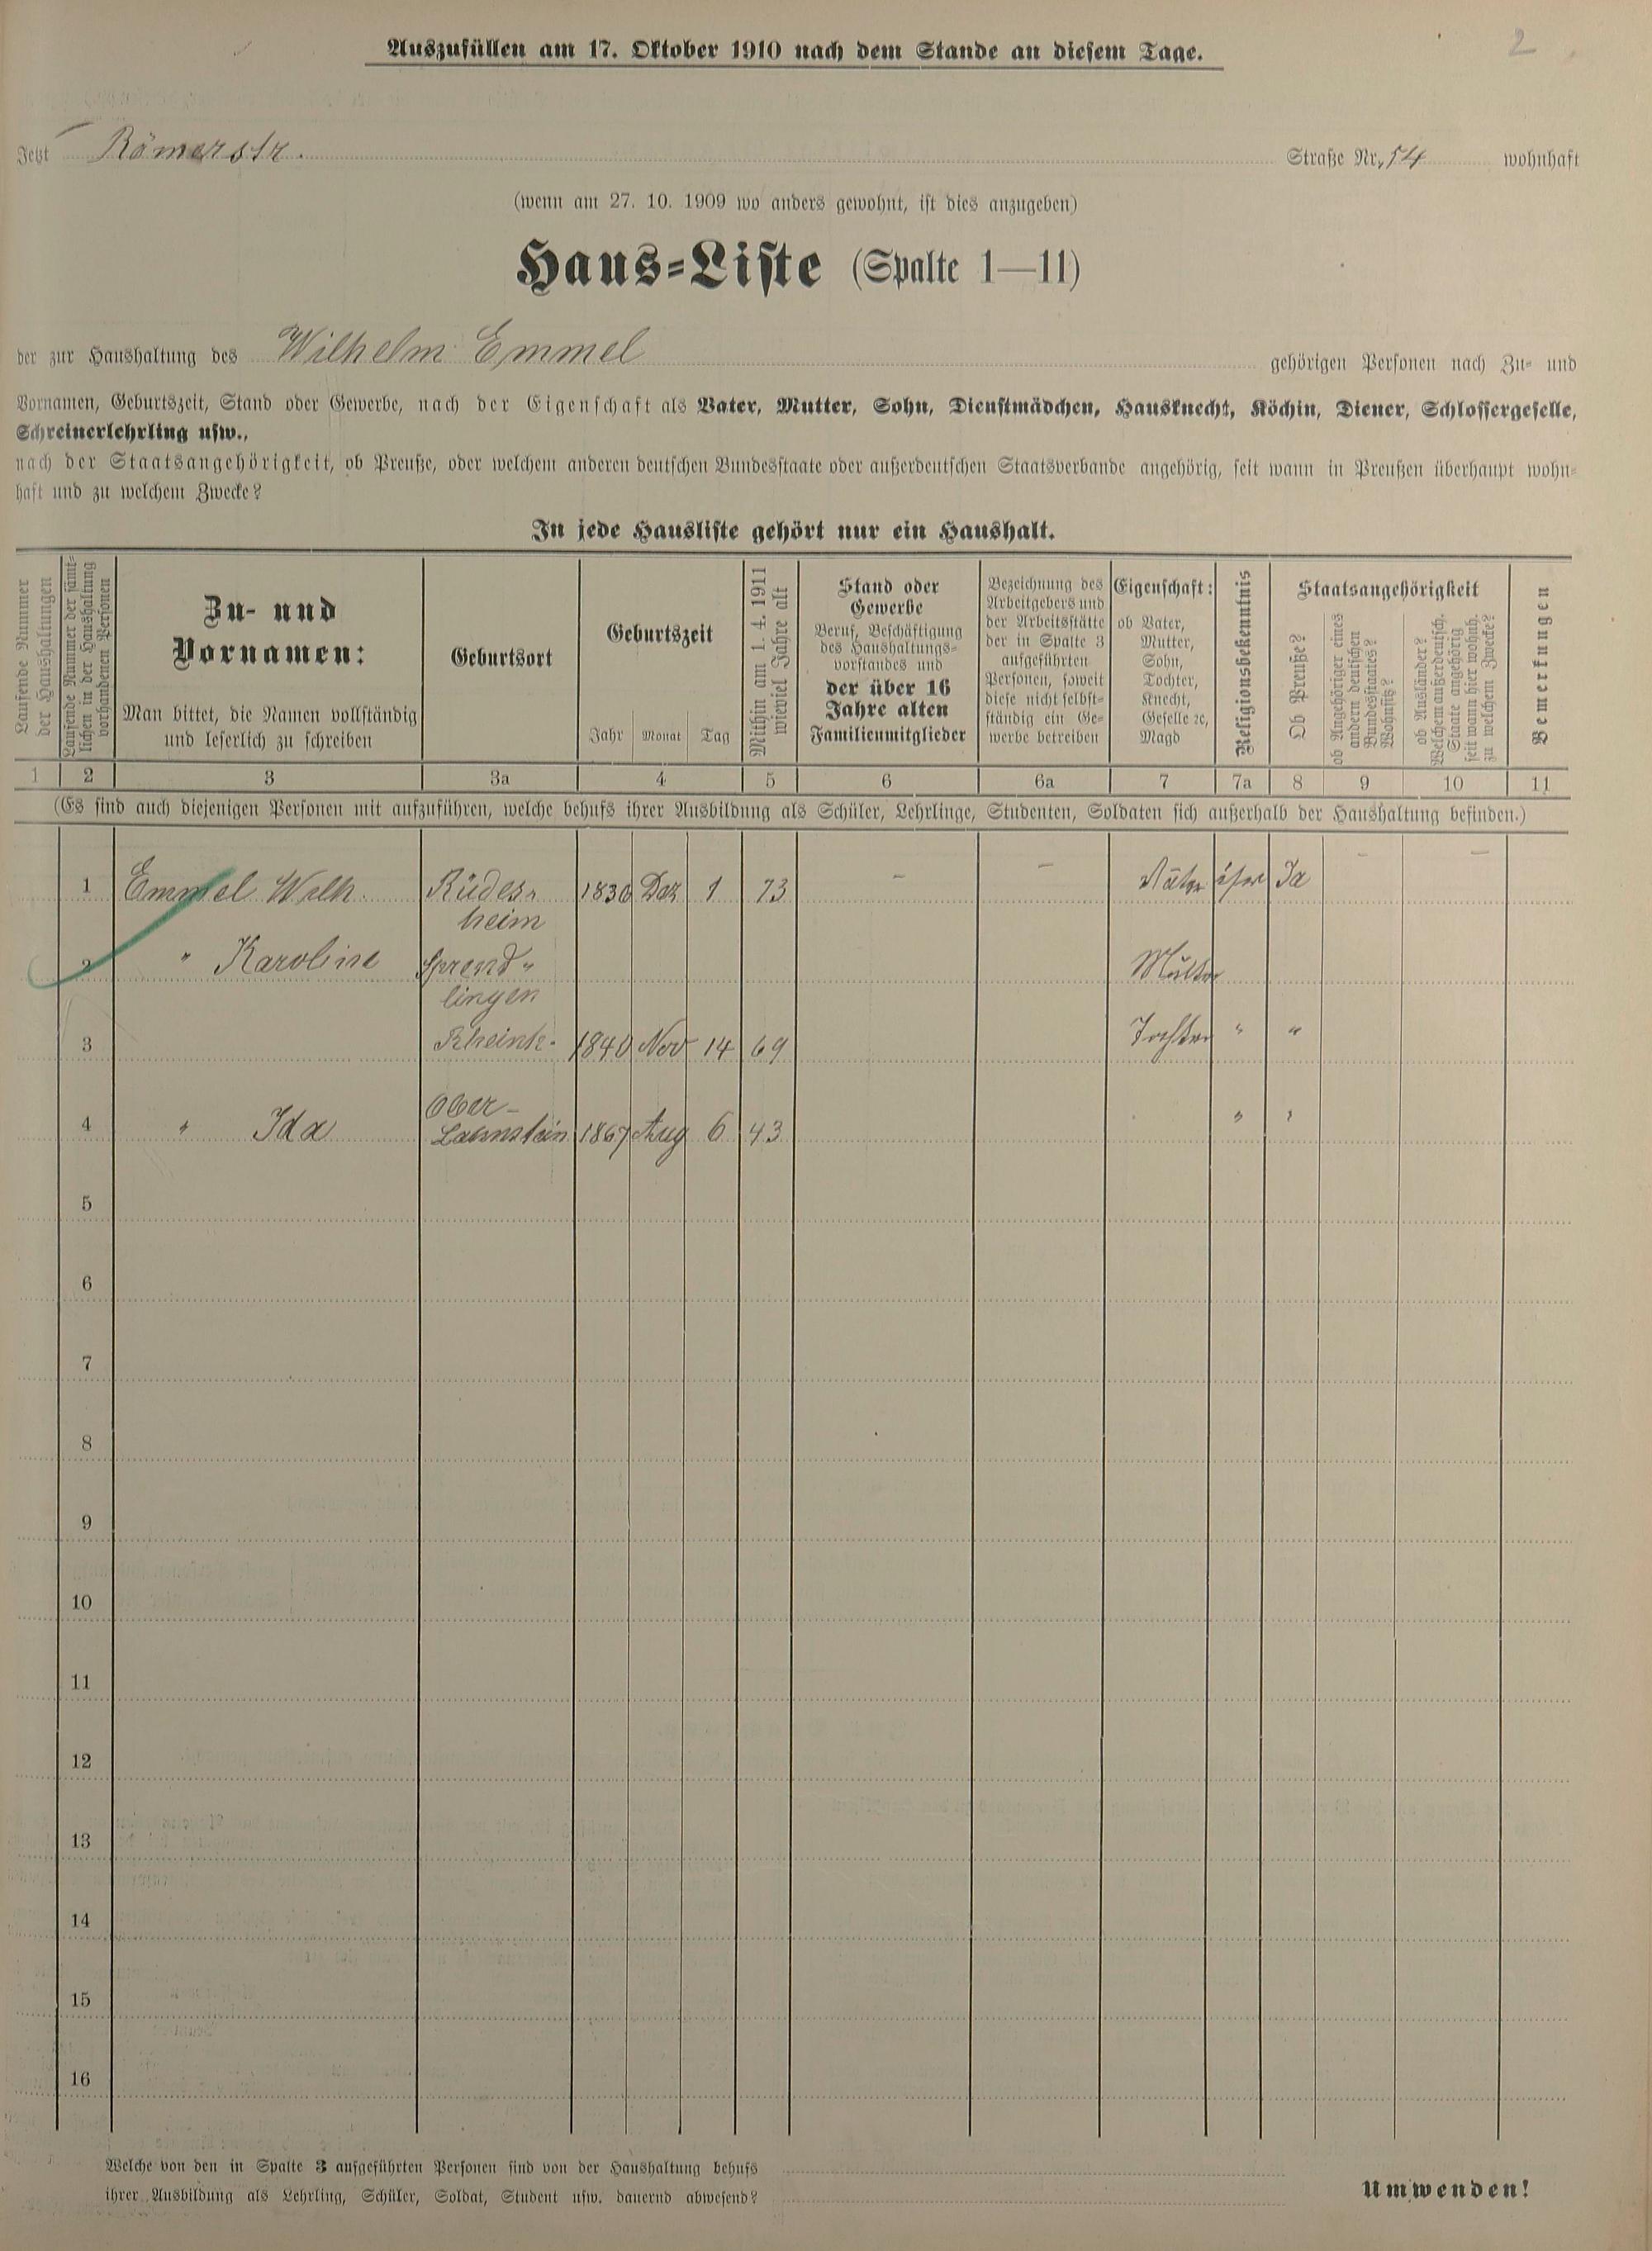 2
Auszufüllen am 17. Oktober 1910 nach dem Stande an diesem Tage.
Jetzt Römerstr. Straße Nr. 54 wohnhaft
(wenn am 27. 10. 1909 wo anders gewohnt, ist dies anzugeben)
Haus-Liste (Spalte 1—11)
der zur Haushaltung des Wilhelm Emmel gehörigen Personen nach Zu- und
Vornamen, Geburtszeit, Stand oder Gewerbe, nach der Eigenschaft als Vater, Mutter, Sohn, Dienstmädchen, Hausknecht, Köchin, Diener, Schlossergeselle,
Schreinerlehrling usw.,
nach der Staatsangehörigkeit, ob Preuße, oder welchem anderen deutschen Bundesstaate oder außerdeutschen Staatsverbande angehörig, seit wann in Preußen überhaupt wohn-
haft und zu welchem Zwecke?
In jede Hausliste gehört nur ein Haushalt.
Laufende Nummer
der Haushaltungen
Laufende Nummer der sämt-
lichen in der Haushaltung
vorhandenen Personen
Zu- und
Vornamen:
Man bittet, die Namen vollständig
und leserlich zu schreiben
Geburtsort
Geburtszeit
Jahr Monat Tag
Mithin am 1. 4. 1911
wieviel Jahre alt
Stand oder
Gewerbe
Beruf, Beschäftigung
des Haushaltungs-
vorstandes und
der über 16
Jahre alten
Familienmitglieder
Bezeichnung des
Arbeitgebers und
der Arbeitsstätte
der in Spalte 3
aufgeführten
Personen, soweit
diese nicht selbst-
ständig ein Ge-
werbe betreiben
Eigenschaft:
ob Vater,
Mutter,
Sohn,
Tochter,
Knecht,
Geselle ec,
Magd
Religionsbekenntnis
Staatsangehörigkeit
Ob Preuße?
ob Angehöriger eines
andern deutschen
Bundesstaates?
Wohnsitz?
ob Ausländer?
Welchem außerdeutsch.
Staate angehörig
seit wann hier wohnh.
zu welchem Zwecke?
Bemerkungen
1 2 3 3a 4 5 6 6a 7 7a 8 9 10 11
(Es sind auch diejenigen Personen mit aufzuführen, welche behufs ihrer Ausbildung als Schüler, Lehrlinge, Studenten, Soldaten sich außerhalb der Haushaltung befinden.)
1 Emmel Wilh. Rüdes- Dez 1 73 — — Vater Ja — —
heim
2 " Karoline Sprend- Mutter
lingen
3 Rheinh. 1840 Nov 14 69 Tochter " "
Ober-
4 " Ida Lahnstein 1867 Aug 6 43 " "
5
6
7
8
9
10
11
12
13
14
15
16
Welche von den in Spalte 3 aufgeführten Personen sind von der Haushaltung behufs
ihrer Ausbildung als Lehrling, Schüler, Soldat, Student usw. dauernd abwesend?
Umwenden!